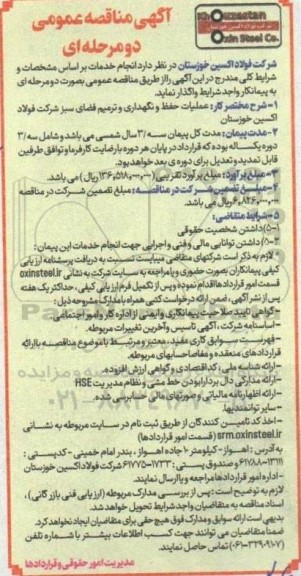 Khouzestan
Oxin Steel Co.
آگهی مناقصه عمومی
دو مرحله ای
شرکت فولاد اکسین خوزستان در نظر دارد انجام خدمات بر اساس مشخصات و
شرایط کلی مندرج در این آگهی را از طریق مناقصه عمومی بصورت دو مرحله ای
به پیمانکار واجد شرایط واگذار نماید.
۱- شرح مختصر کار: عملیات حفظ و نگهداری و ترمیم فضای سبز شرکت فولاد
اکسین خوزستان
۲- مدت پیمان: مدت کل پیمان سه /۳ سال شمسی می باشد و شامل سه /۳
دوره یکساله بوده که قرارداد در پایان هر دوره با رضایت کارفرما و توافق طرفین
قابل تمدید و تعدیل برای دوره ی بعد خواهد بود.
۳- مبلغ برآورد: مبلغ برآورد تقریبی (۱۳۶,۵۱۸,۰۰۰,۰۰۰ ریال) می باشد.
۴- مبلغ تضمین شرکت در مناقصه: مبلغ تضمین شرکت در مناقصه
۶,۸۲۶,۰۰۰,۰۰۰ ریال می باشد.
۵- شرایط متقاضی:
۵-۱) داشتن شخصیت حقوقی
۵-۲) داشتن توانایی مالی و فنی و اجرایی جهت انجام خدمات این پیمان:
* لازم به ذکر است شرکتهای متقاضی میبایست نسبت به دریافت پرسشنامه ارزیابی
کیفی پیمانکاران بصورت حضوری و یا مراجعه به سایت شرکت به نشانی oxinsteel.ir
قسمت امور قراردادها اقدام نموده و پس از تکمیل فرم ارزیابی کیفی، حداکثر یک هفته
پس از نشر آگهی، ضمن ارائه درخواست کتبی همراه با مدارک مشروحه ذیل:
- گواهی تایید صلاحیت پیمانکاری و ایمنی از اداره کار و امور اجتماعی.
- اساسنامه شرکت، آگهی تاسیس و آخرین تغییرات مربوطه.
- فهرست سوابق کاری مفید، معتبر و مرتبط با موضوع مناقصه با ارائه
قراردادهای منعقده و مفاصاحسابهای مربوطه.
- ارائه شناسه ملی، کد اقتصادی و گواهی ارزش افزوده.
- ارائه مدارکی دال بر دارا بودن خط مشی و نظام مدیریت HSE
- ارائه اظهارنامه مالیاتی و صورتهای مالی حسابرسی شده.
- سایر توانمندیها.
- اخذ کد تامین کنندگان از طریق ثبت نام در سایت مربوطه به نشانی
srm.oxinsteel.ir (قسمت امور قراردادها)
به آدرس: اهواز - کیلومتر ۱۰ جاده اهواز، بندر امام خمینی - کدپستی:
۶۱۷۸۸-۱۳۱۱۱ و صندوق پستی: ۱۷۳۳-۶۱۷۷۵ شرکت فولاد اکسین خوزستان
- اداره امور قراردادها مراجعه و یا ارسال نمایند.
لازم به توضیح است: پس از بررسی مدارک مربوطه (ارزیابی فنی بازرگانی)،
اسناد مناقصه به متقاضیان واجد شرایط تحویل خواهد شد.
بدیهی است ارائه سوابق و مدارک فوق هیچ حقی برای متقاضیان ایجاد نخواهد کرد.
ضمنا متقاضیان می توانند جهت کسب اطلاعات بیشتر با شماره تلفن
تماس حاصل نمایند.
مدیریت امور حقوقی و قراردادها